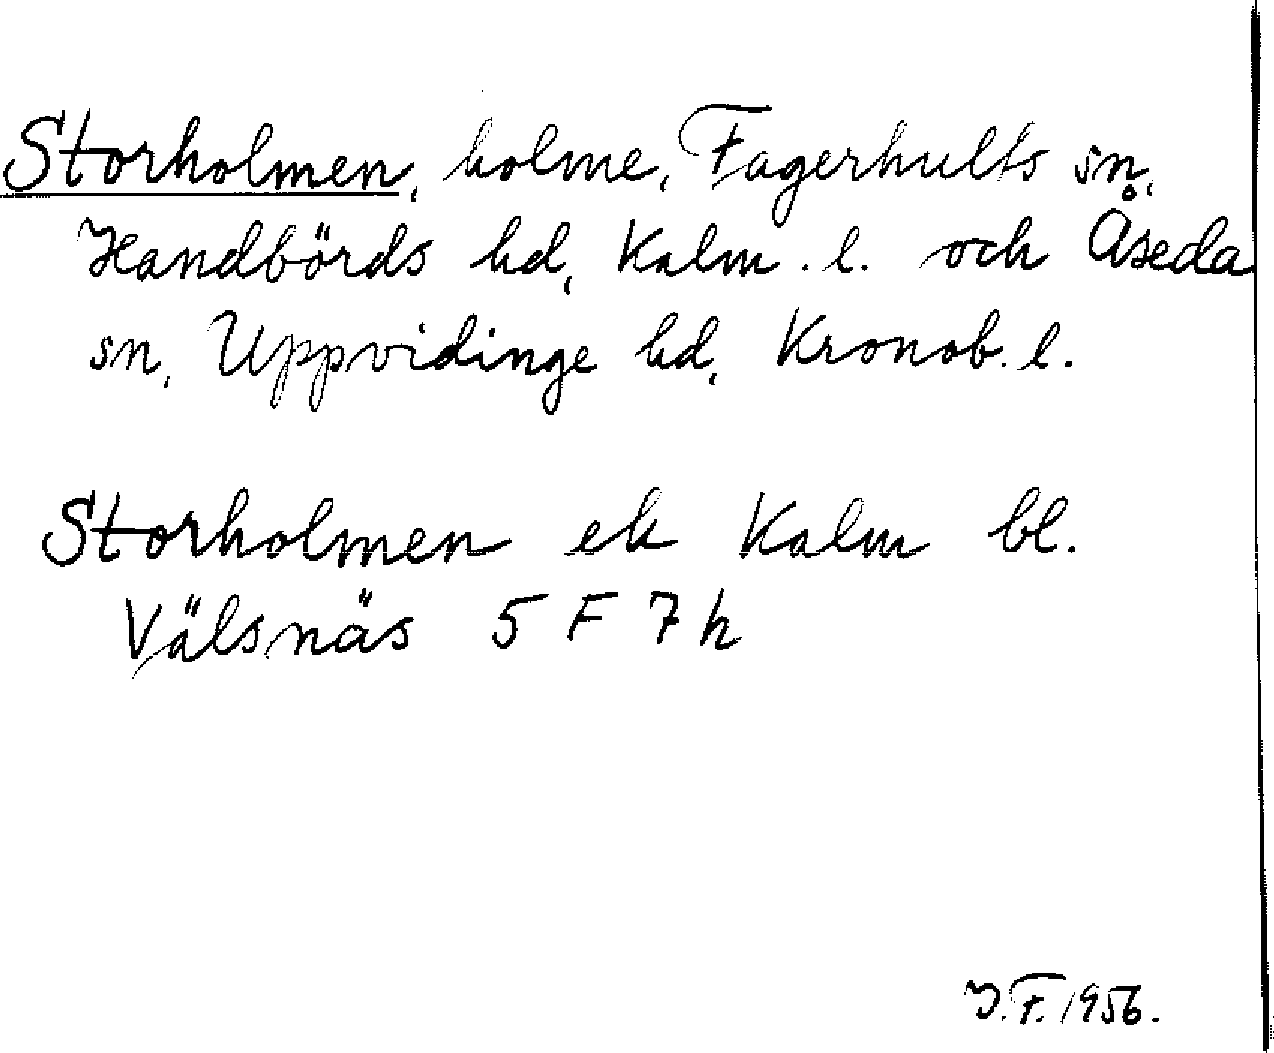 Storholmen, holme, Fagerhults sn,
Handbörds hd, Kalm. l. och Åseda
sn, Uppvidinge hd, Kronob. l.
Storholmen ek Kalm bl.
Välsnäs 5 F 7 h
J.F. 1956.